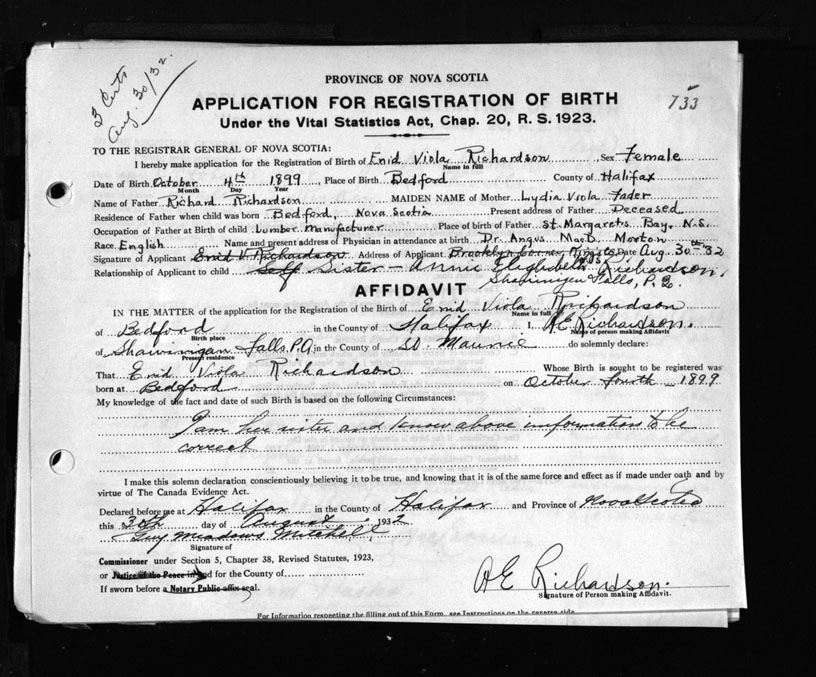 3 Certs
Aug. 30/32.
733
PROVINCE OF NOVA SCOTIA
APPLICATION FOR REGISTRATION OF BIRTH
Under the Vital Statistics Act, Chap. 20, R. S. 1923.
TO THE REGISTRAR GENERAL OF NOVA SCOTIA:
I hereby make application for the Registration of Birth of Enid Viola Richardson, Sex Female
Name in full
Date of Birth October 4th 1899 Place of Birth Bedford County of Halifax
Month Day Year
Name of Father Richard Richardson MAIDEN NAME of Mother Lydia Viola Fader
Residence of Father when child was born Bedford, Nova Scotia Present address of Father Deceased
Occupation of Father at Birth of child Lumber Manufacturer Place of birth of Father St. Margarets Bay, N.S.
Race English Name and present address of Physician in attendance at birth Dr. Angus MacD. Morton
Signature of Applicant Enid V. Richardson Address of Applicant Brooklyn Corner Date Aug. 30th 32
Relationship of Applicant to child Self Sister - Annie Elizabeth Richardson,
Shawinigan Falls, P.Q.
AFFIDAVIT
IN THE MATTER of the application for the Registration of the Birth of Enid Viola Richardson
Name in full
of Bedford in the County of Halifax I, A E Richardson.
Birth place Name of person making Affidavit
of Shawinigan Falls, P.Q in the County of St. Maurice do solemnly declare:
Present residence
That Enid Viola Richardson Whose Birth is sought to be registered was
born at Bedford on October fourth 1899
My knowledge of the fact and date of such Birth is based on the following Circumstances:
I am her sister and know above information to be
correct
I make this solemn declaration conscientiously believing it to be true, and knowing that it is of the same force and effect as if made under oath and by
virtue of The Canada Evidence Act.
Declared before me at Halifax in the County of Halifax and Province of Nova Scotia
this 30th day of August 1932
Guy Meadows Mitchell
Signature of
Commissioner under Section 5, Chapter 38, Revised Statutes, 1923,
or Justice of the Peace in and for the County of
If sworn before a Notary Public affix seal.
A E Richardson.
Signature of Person making Affidavit.
For Information respecting the filling out of this Form, see Instructions on the reverse side